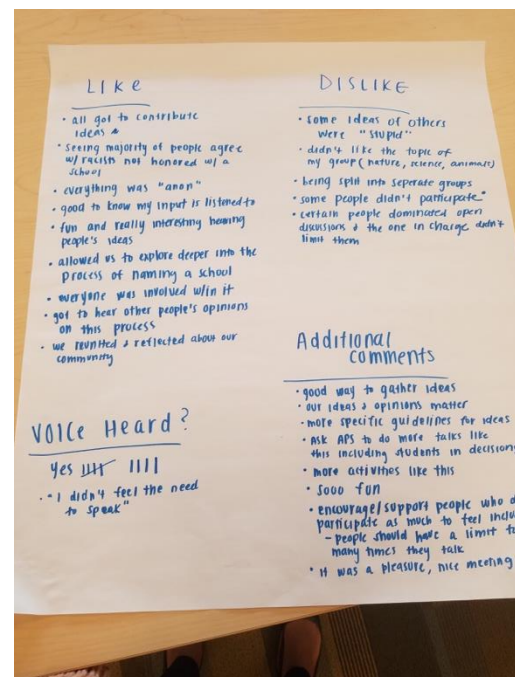 LIKE
• all got to contribute
ideas
• seeing majority of people agree
w/ racists not honored w/ a
school
• everything was "anon"
• good to know my input is listened to
• fun and really interesting hearing
people's ideas
• allowed us to explore deeper into the
process of naming a school
• everyone was involved w/in it
• got to hear other people's opinions
on this process
• we reunited & reflected about our
community
VOICE Heard?
Yes 卌 ||||
• "I didn't feel the need
to speak"
DISLIKE
• some ideas of others
were "stupid"
• didn't like the topic of
my group (nature, science, animals)
• being split into seperate groups
• some people didn't participate
• certain people dominated open
discussions & the one in charge didn't
limit them
Additional
comments
• good way to gather ideas
• our ideas & opinions matter
• more specific guidelines for ideas
• Ask APS to do more talks like
this including students in decision
• more activities like this
• sooo fun
• encourage/support people who d
participate as much to feel inclu
- people should have a limit to
many times they talk
• it was a pleasure, nice meeting